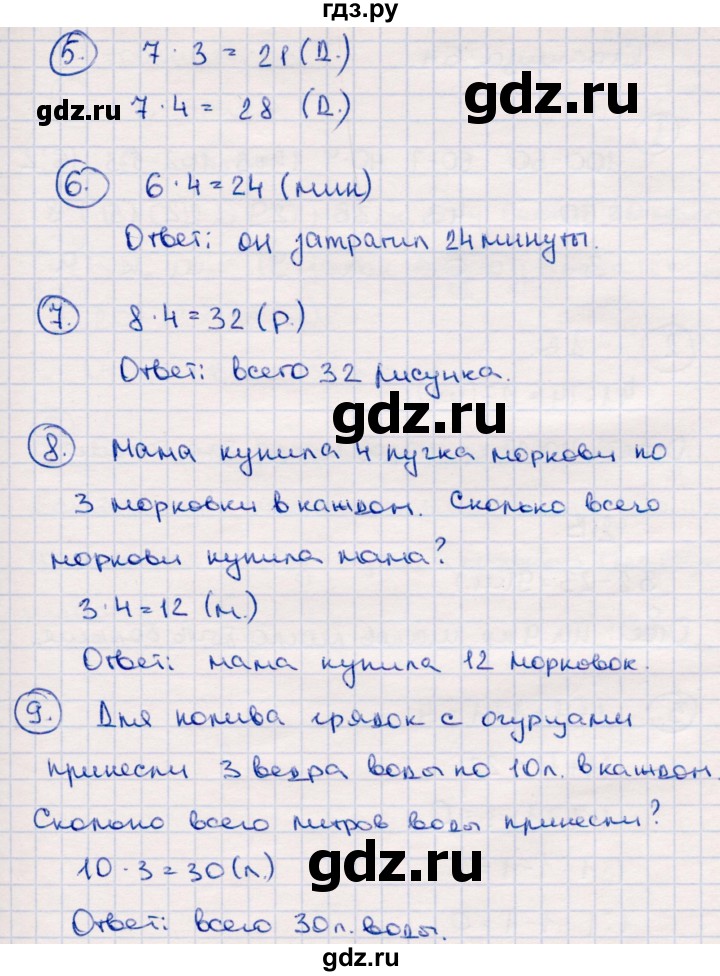 гдз.ру
5. 7 · 3 = 21 (д.)
gdz.ru
gdz.ru
7 · 4 = 28 (д.)
6. 6 · 4 = 24 (мин)
Ответ: он затратил 24 минуты.
7. 8 · 4 = 32 (р.)
Ответ: всего 32 рисунка.
gdz.ru
8. Мама купила 4 пучка моркови по
3 морковки в каждом. Сколько всего
моркови купила мама?
3 · 4 = 12 (м.)
Ответ: мама купила 12 морковок.
9. Для полива грядок с огурцами
принесли 3 ведра воды по 10л. в каждом.
Сколько всего литров воды принесли?
10 · 3 = 30 (л.)
gdz.ru
Ответ: всего 30л. воды.
gdz.ru